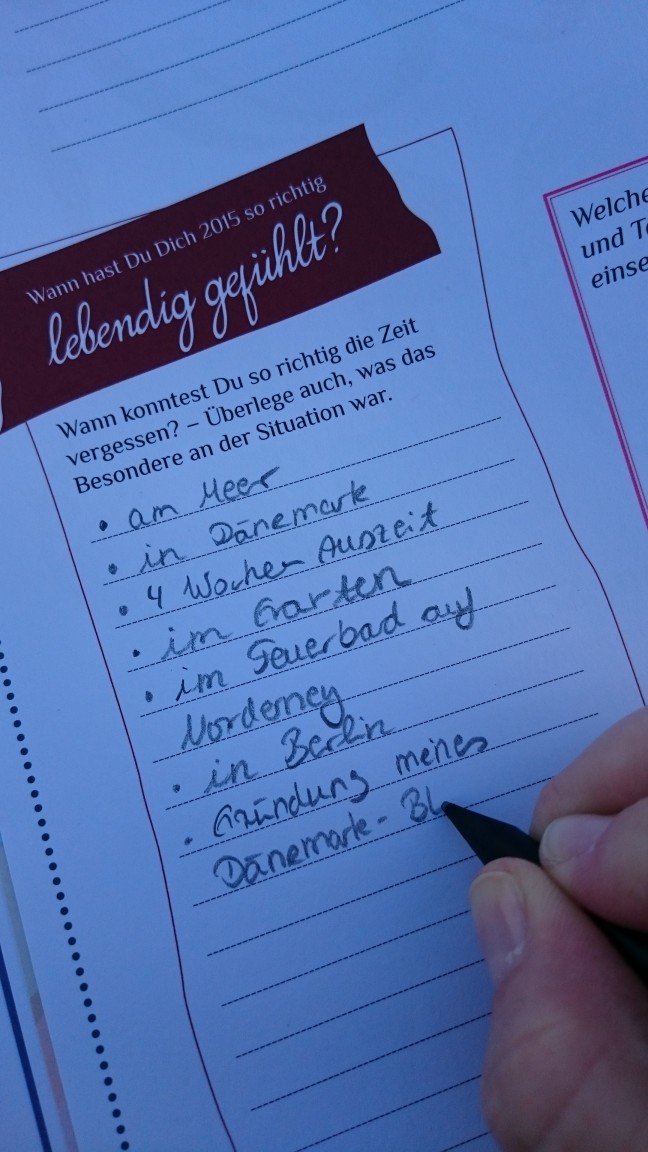 Wann hast Du Dich 2015 so richtig
lebendig gefühlt?
Wann konntest Du so richtig die Zeit
vergessen? – Überlege auch, was das
Besondere an der Situation war.
• am Meer
• in Dänemark
• 4 Wochen Auszeit
• im Garten
• im Feuerbad auf
Norderney
• in Berlin
• Gründung meines
Dänemark - Bl
Welche
und T
einse